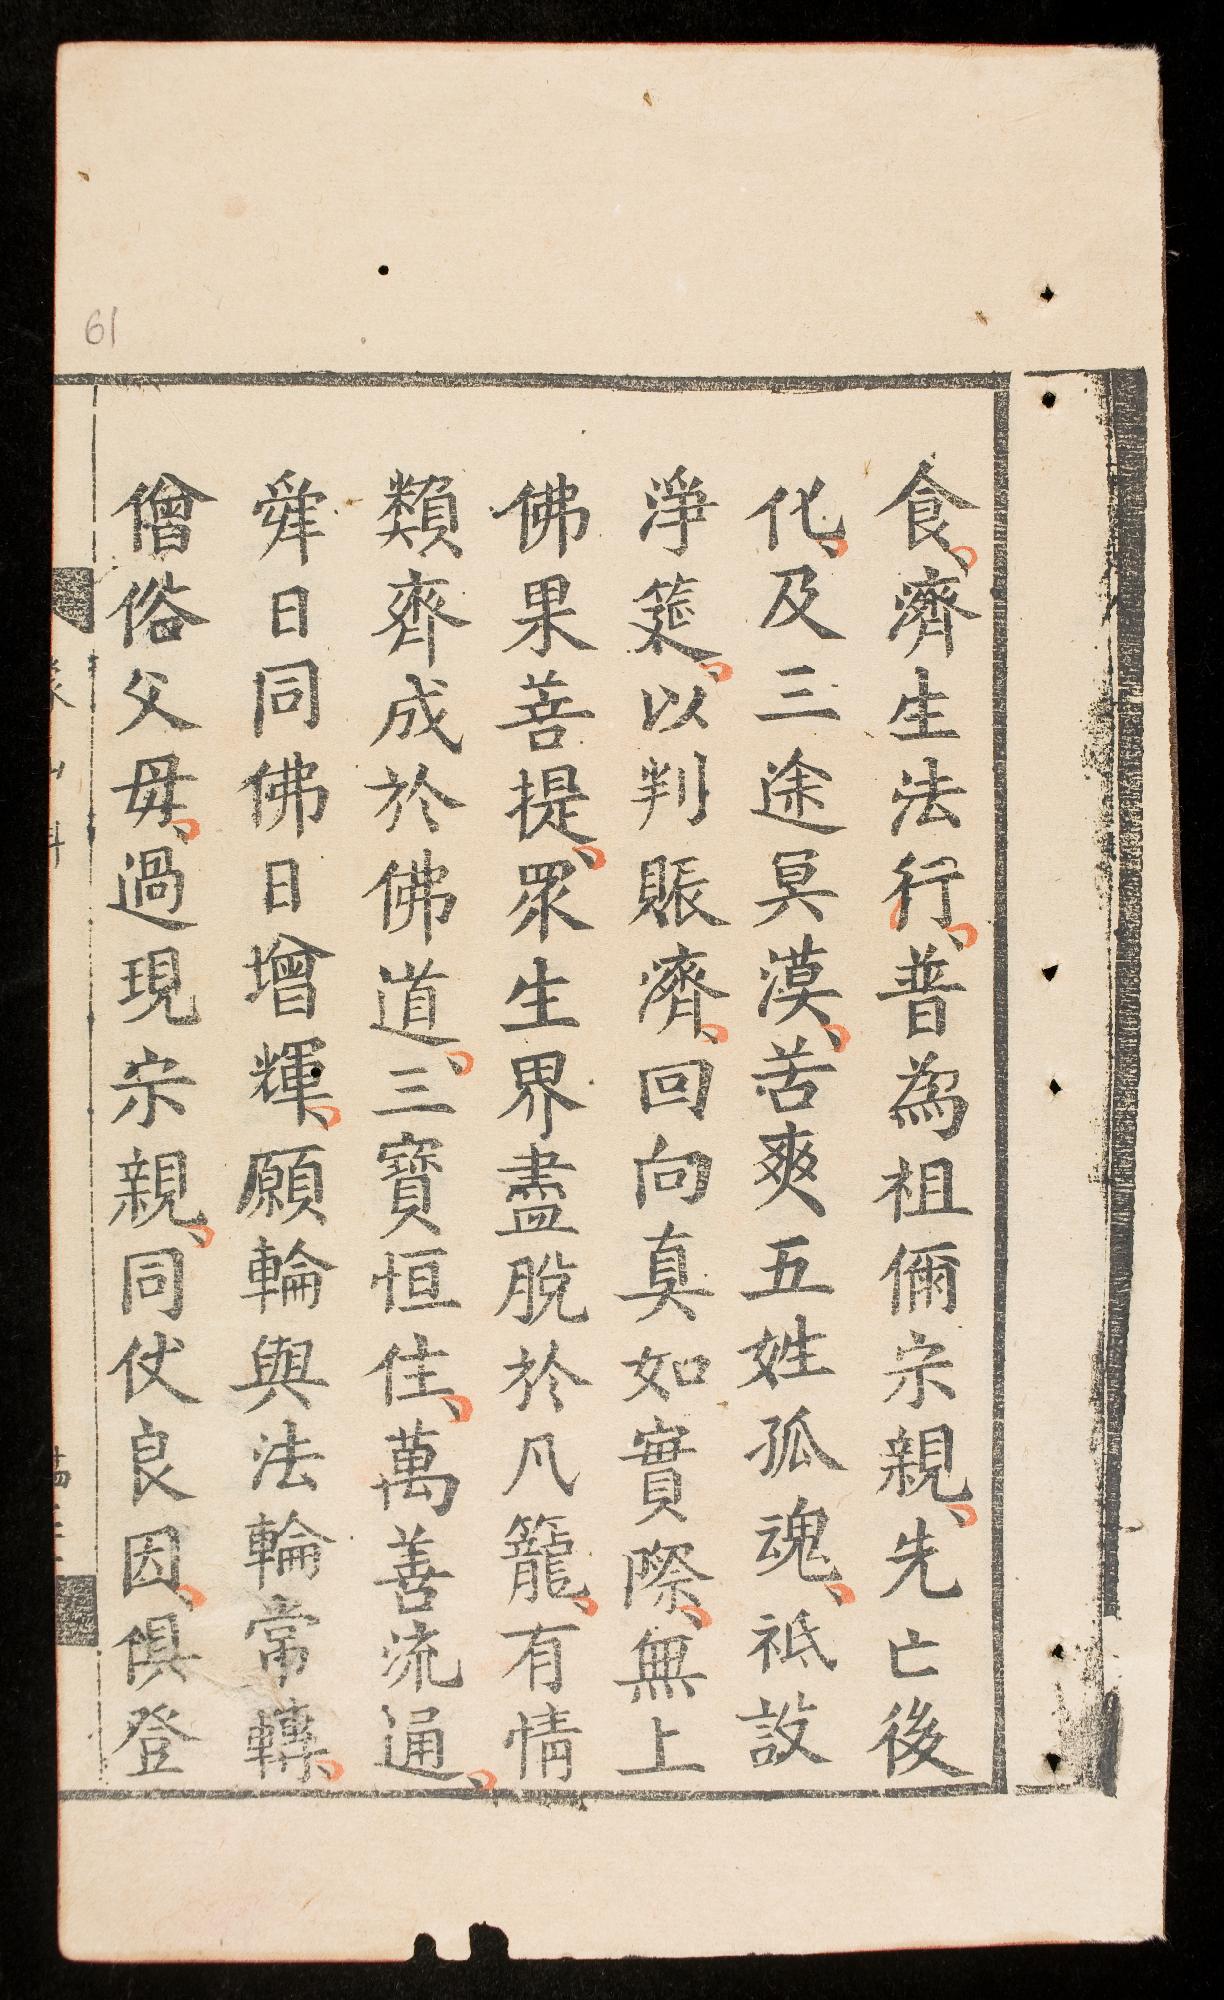 食、濟生法行、普為祖彌宗親、先亡後
化、及三途冥漠、苦爽五姓孤魂、祗設
淨筵、以判賑濟、回向真如實際、無上
佛果菩提、眾生界盡脫於凡籠、有情
類齊成於佛道、三寶恒住、萬善流通、
舜日同佛日增輝、願輪與法輪常轉、
僧俗父母、過現宗親、同仗良因、俱登
61